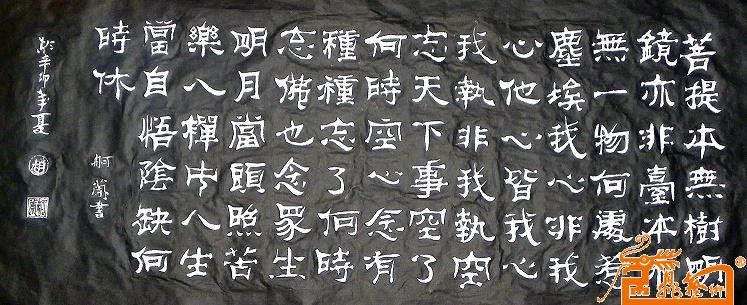 菩提本無樹明
鏡亦非臺本
無一物何處惹
塵埃我心非我
心他心皆我心
我執非我執空
忘天下事空了
何時空心念有
種種忘了何時
忘佛也念眾生
明月當頭照苦
樂入禪中人生
當自悟陰缺何
時休
書
辛卯年夏